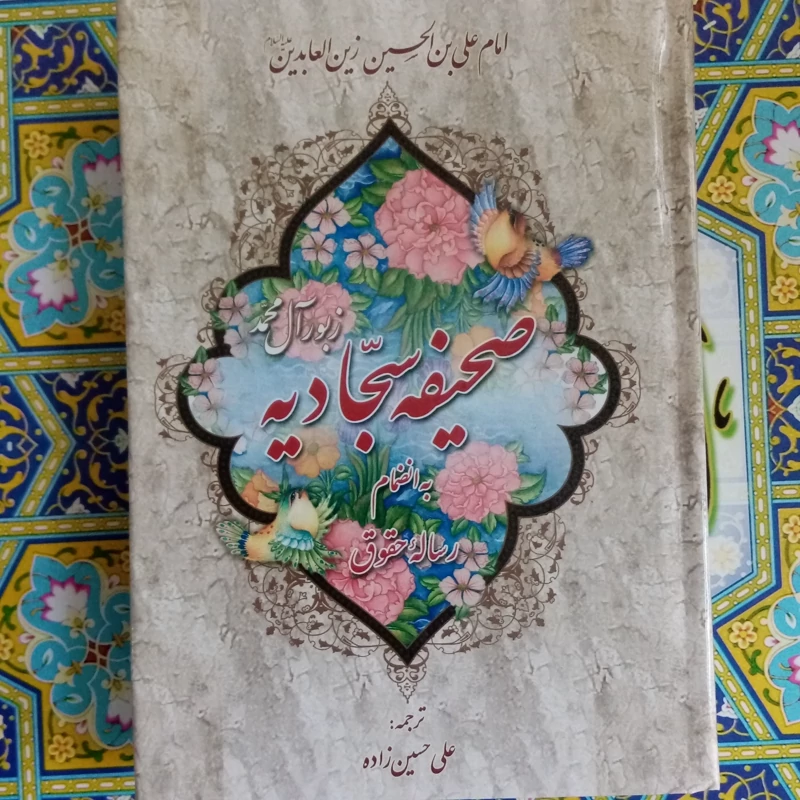 امام علی بن الحسین زین العابدین علیه‌السلام
زبور آل محمد
صحیفه سجّادیه
به انضمام
رسالهٔ حقوق
ترجمه:
علی حسین زاده